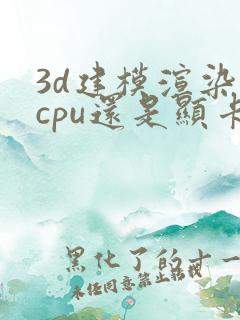 3d建模渲染
cpu還是顯卡
黑化了的十一
未经同意禁止转载